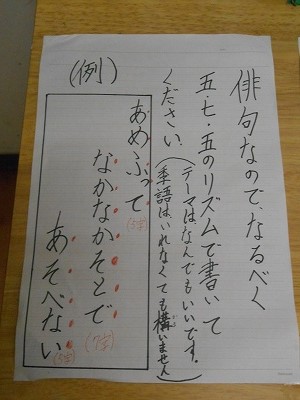 俳句なので、なるべく
五・七・五のリズムで書いて
ください。
(テーマはなんでもいいです。
季語はいれなくても構いません)
かま
(例)
あめふって
(5字)
なかなかそとで
(7字)
あそべない
(5字)